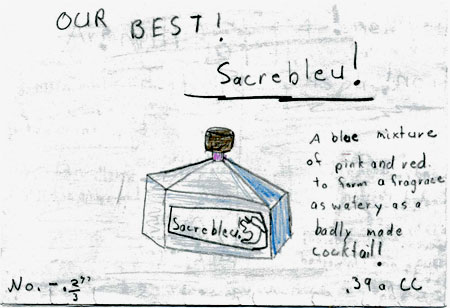 OUR BEST!
Sacrebleu!
A blue mixture
of pink and red
to form a fragrace
as watery as a
badly made
cocktail!
Sacrebleu!
.39 a CC